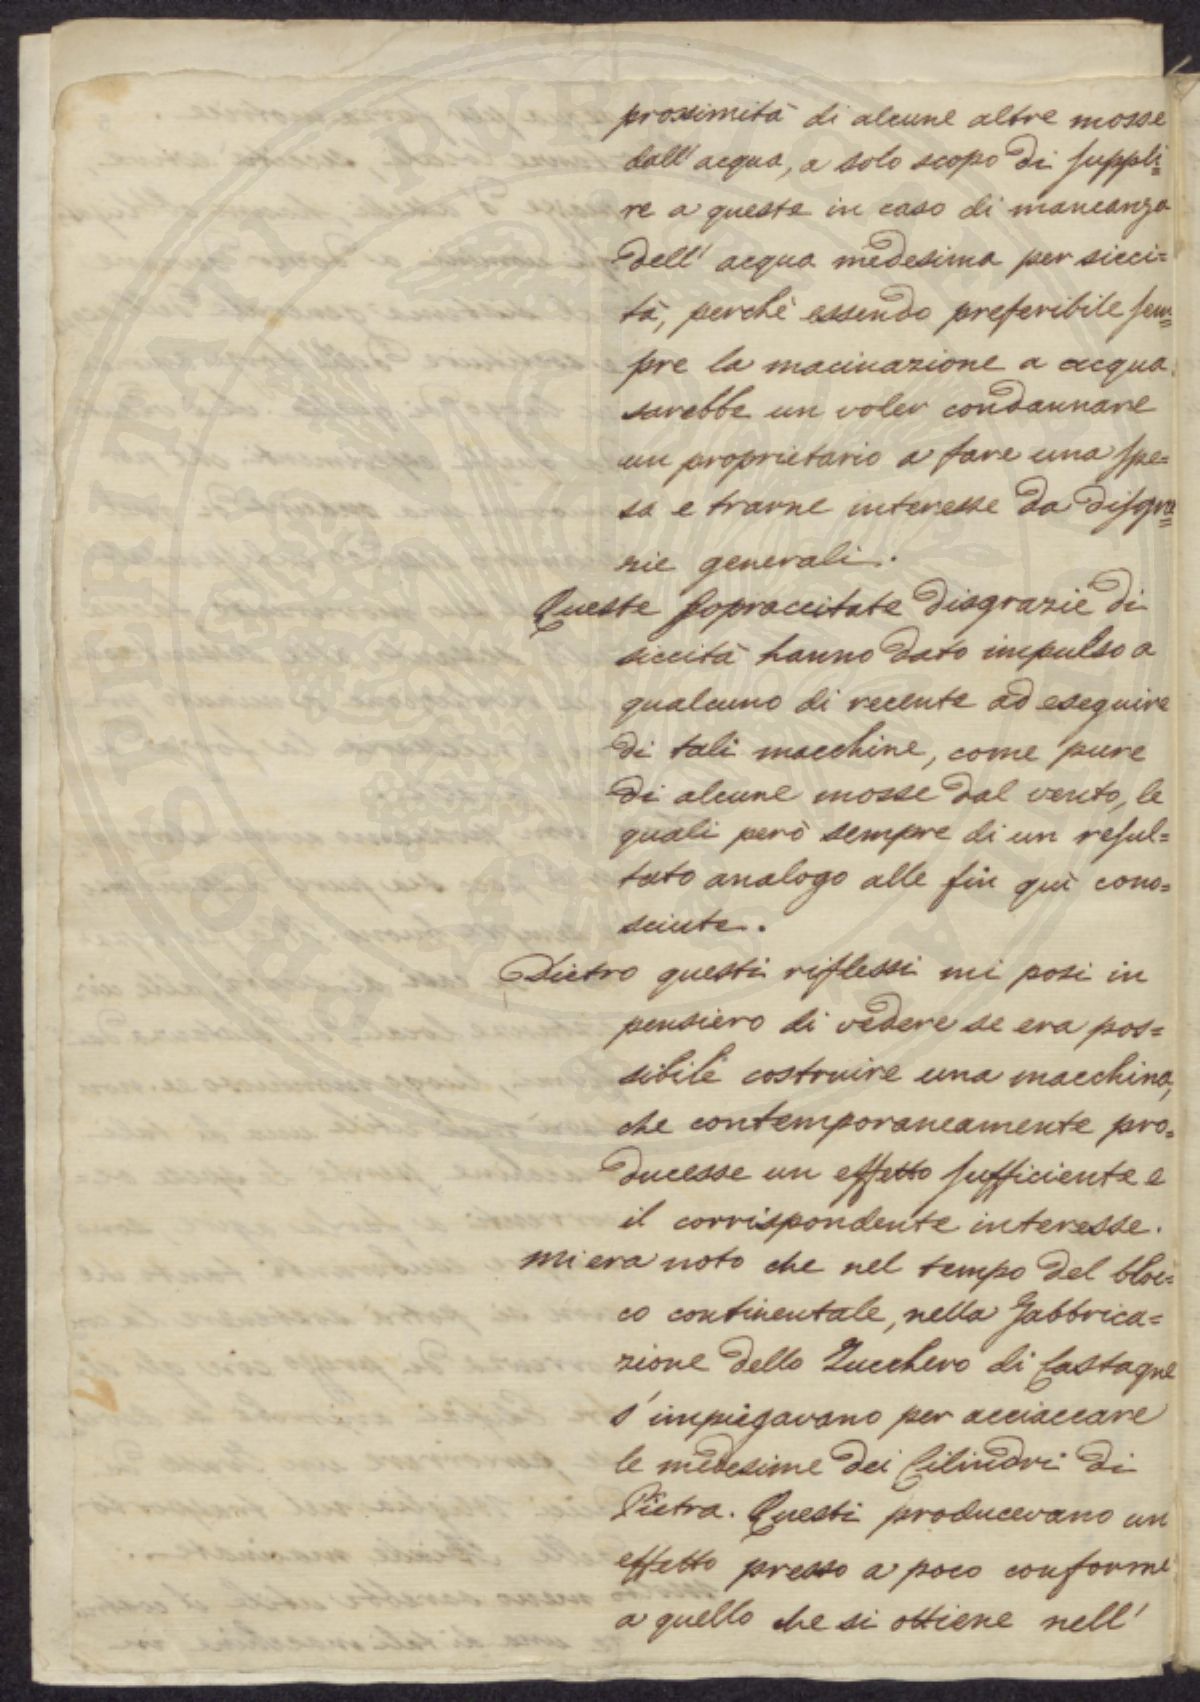 prossimità di alcune altre mosse
dall' acqua, a solo scopo di suppli=
re a queste in caso di mancanza
dell' acqua medesima per sicci=
tà, perchè essendo preferibile sem=
pre la macinazione a acqua
sarebbe un voler condannare
un proprietario a fare una spe=
sa e trarne interesse da disgra=
zie generali.
Queste sopraccitate disgrazie di
siccità hanno dato impulso a
qualcuno di recente ad eseguire
di tali macchine, come pure
di alcune mosse dal vento, le
quali però sempre di un resul=
tato analogo alle fin quì cono=
sciute.
Dietro questi riflessi mi posi in
pensiero di vedere se era pos=
sibile costruire una macchina,
che contemporaneamente pro=
ducesse un effetto sufficiente e
il corrispondente interesse.
Mi era noto che nel tempo del bloc=
co continentale, nella fabbrica=
zione dello Zucchero di Castagne
s' impiegavano per acciaccare
le medesime dei Cilindri di
Pietra. Questi producevano un
effetto presso a poco conforme
a quello che si ottiene nell'
PROSPERITATI PVBLICAE